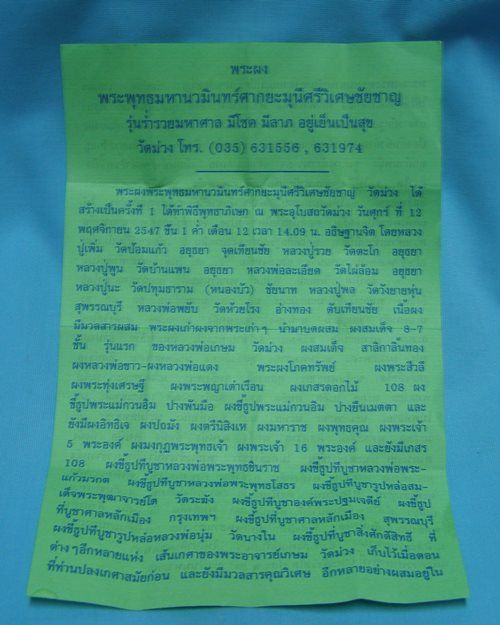 พระผง
พระพุทธมหานวมินทร์ศากยะมุนีศรีวิเศษชัยชาญ
รุ่นร่ำรวยมหาศาล มีโชค มีลาภ อยู่เย็นเป็นสุข
วัดม่วง โทร. (035) 631556 , 631974
พระผงพระพุทธมหานวมินทร์ศากยะมุนีศรีวิเศษชัยชาญ วัดม่วง ได้
สร้างเป็นครั้งที่ 1 ได้ทำพิธีพุทธาภิเษก ณ พระอุโบสถวัดม่วง วันศุกร์ ที่ 12
พฤศจิกายน 2547 ขึ้น 1 ค่ำ เดือน 12 เวลา 14.09 น. อธิษฐานจิต โดยหลวง
ปู่เพิ่ม วัดป้อมแก้ว อยุธยา จุดเทียนชัย หลวงปู่รวย วัดตะโก อยุธยา
หลวงปู่พูน วัดบ้านแพน อยุธยา หลวงพ่อละเอียด วัดไผ่ล้อม อยุธยา
หลวงปู่นะ วัดปทุมธาราม (หนองบัว) ชัยนาท หลวงปู่พล วัดวังยายหุ่น
สุพรรณบุรี หลวงพ่อพยับ วัดห้วยโรง อ่างทอง ดับเทียนชัย เนื้อผง
มีมวลสารผสม พระผงเก่าผงจากพระเก่าๆ นำมาบดผสม ผงสมเด็จ 8-7
ชั้น รุ่นแรก ของหลวงพ่อเกษม วัดม่วง ผงสมเด็จ สาลิกาลิ้นทอง
ผงหลวงพ่อขาว-ผงหลวงพ่อแดง พระผงโภคทรัพย์ ผงพระสีวลี
ผงพระทุ่งเศรษฐี ผงพระพญาเต่าเรือน ผงเกสรดอกไม้ 108 ผง
ขี้ธูปพระแม่กวนอิม ปางพันมือ ผงขี้ธูปพระแม่กวนอิม ปางยืนเมตตา และ
ยังมีผงอิทธิเจ ผงปถมัง ผงตรีนิสิงเห ผงมหาราช ผงพุทธคุณ ผงพระเจ้า
5 พระองค์ ผงมงกุฎพระพุทธเจ้า ผงพระเจ้า 16 พระองค์ และยังมีเกสร
108 ผงขี้ธูปที่บูชาหลวงพ่อพระพุทธชินราช ผงขี้ธูปที่บูชาหลวงพ่อพระ-
แก้วมรกต ผงขี้ธูปหลวงพ่อพระพุทธโสธร ผงขี้ธูปที่บูชารูปหล่อสม-
เด็จพระพุฒาจารย์โต วัดระฆัง ผงขี้ธูปที่บูชาองค์พระปฐมเจดีย์ ผงขี้ธูป
ที่บูชาศาลหลักเมือง กรุงเทพฯ ผงขี้ธูปที่บูชาศาลหลักเมือง สุพรรณบุรี
ผงขี้ธูปที่บูชารูปหล่อหลวงพ่อนุ่ม วัดนางใน ผงขี้ธูปที่บูชาสิ่งศักดิ์สิทธิ์ ที่
ต่างๆ อีกหลายแห่ง เส้นเกศาของพระอาจารย์เกษม วัดม่วง เก็บไว้เมื่อตอน
ที่ท่านปลงเกศาสมัยก่อน และยังมีมวลสารคุณวิเศษ อีกหลายอย่างผสมอยู่ใน